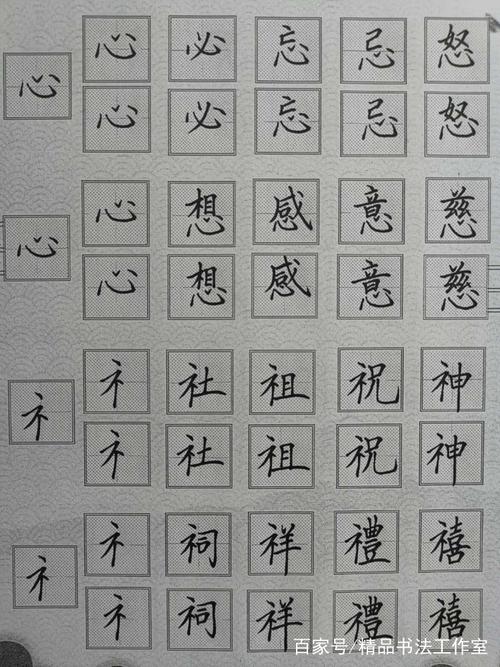 心 心 必 忘 忌 怒
心 必 忘 忌 怒
心 心 想 感 意 慈
心 想 感 意 慈
礻 礻 社 祖 祝 神
礻 社 祖 祝 神
礻 礻 祠 祥 禮 禧
礻 祠 祥 禮 禧
百家号/精品书法工作室